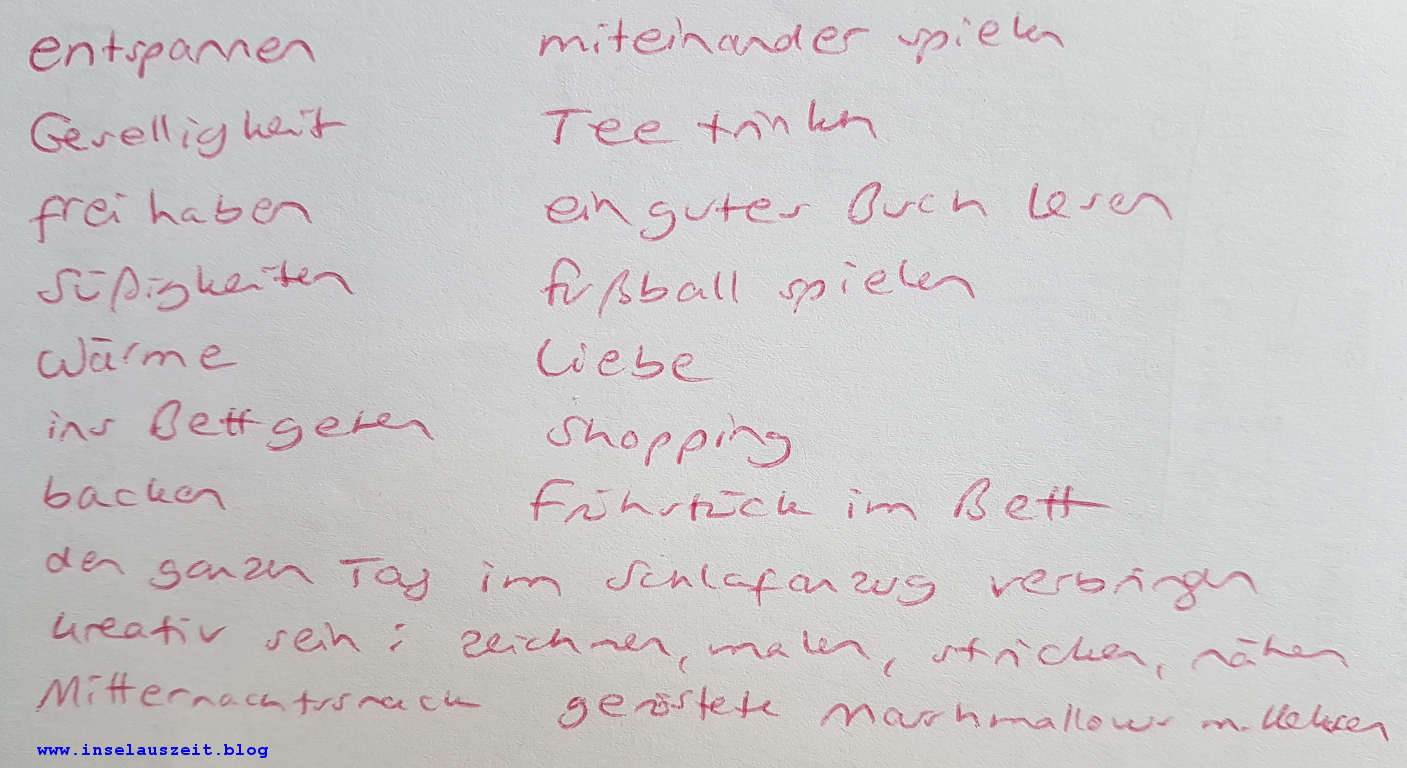 entspannen miteinander spielen
Geselligkeit Tee trinken
frei haben ein gutes Buch lesen
Süßigkeiten Fußball spielen
Wärme Liebe
ins Bett gehen Shopping
backen Frühstück im Bett
den ganzen Tag im Schlafanzug verbringen
kreativ sein: zeichnen, malen, stricken, nähen
Mitternachtssnack geröstete Marshmallows m. Keksen
www.inselauszeit.blog